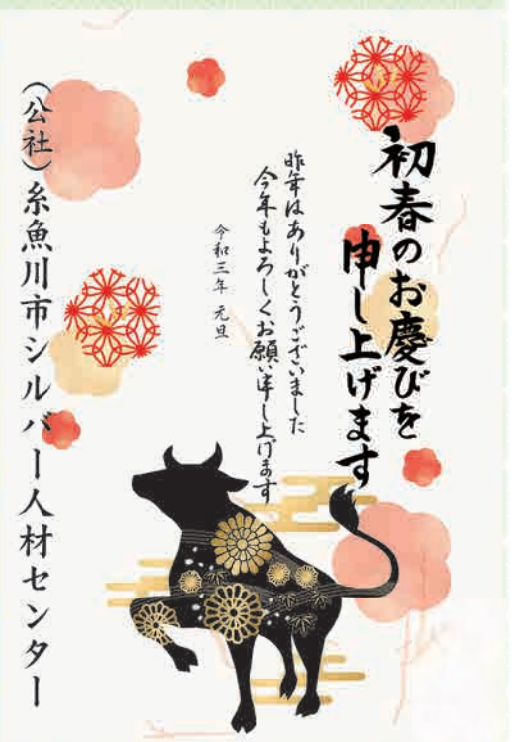 初春のお慶びを
申し上げます
昨年はありがとうございました
今年もよろしくお願い申し上げます
令和三年 元旦
（公社）糸魚川市シルバー人材センター